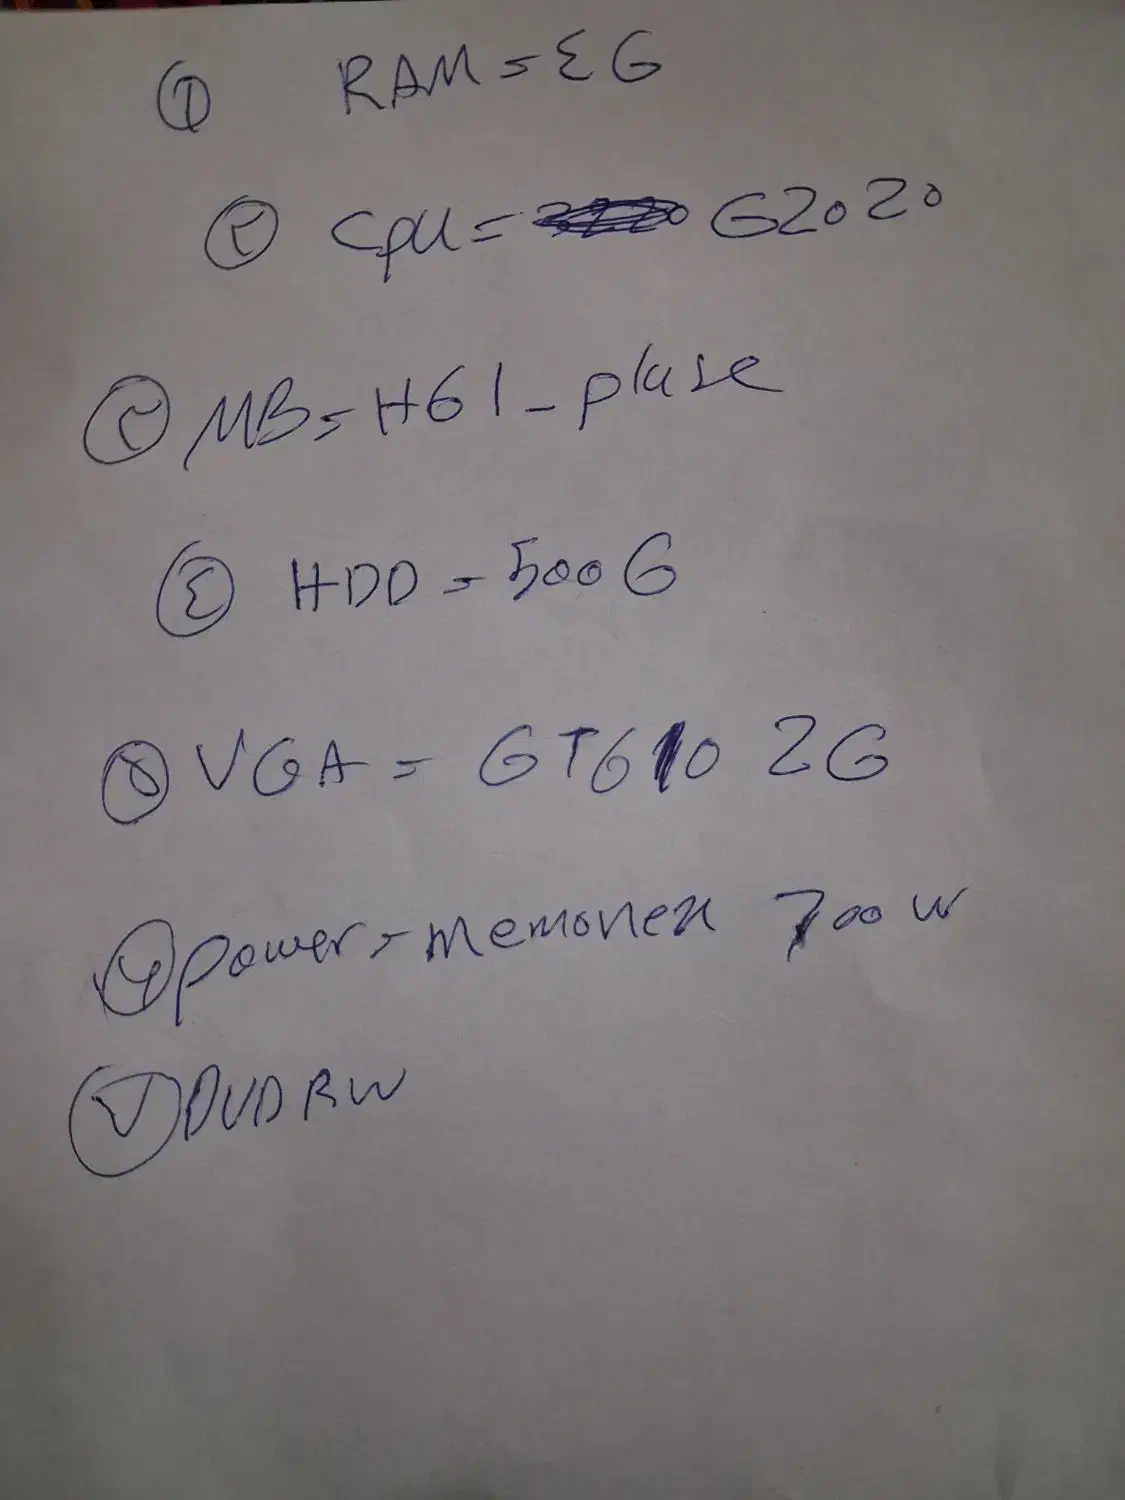 ① RAM = ٤G
② CPU = G2020
③ MB = H61 - pluse
④ HDD = 500G
⑤ VGA = GT610 2G
⑥ power = memonex 700w
⑦ DVD RW